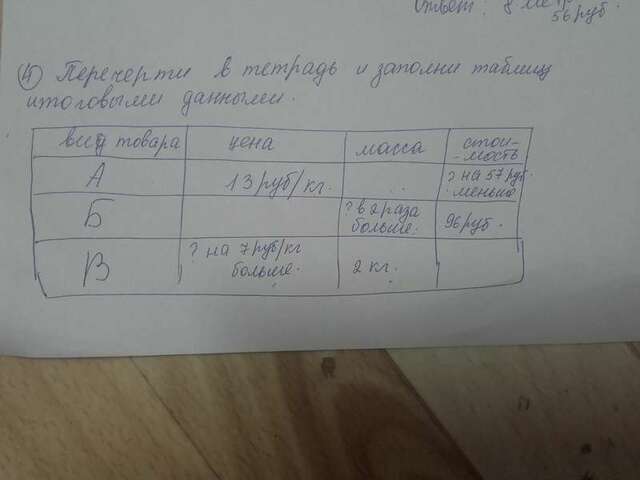 Ответ: 8 метр
56 руб.
4) Перечерти в тетрадь и заполни таблиц
итоговыми данными.
вид товара цена масса стои-
-мость
А 13 руб/кг. ? на 57 руб.
меньше
Б ? в 2 раза
больше. 96 руб.
В ? на 7 руб/кг
больше. 2 кг.